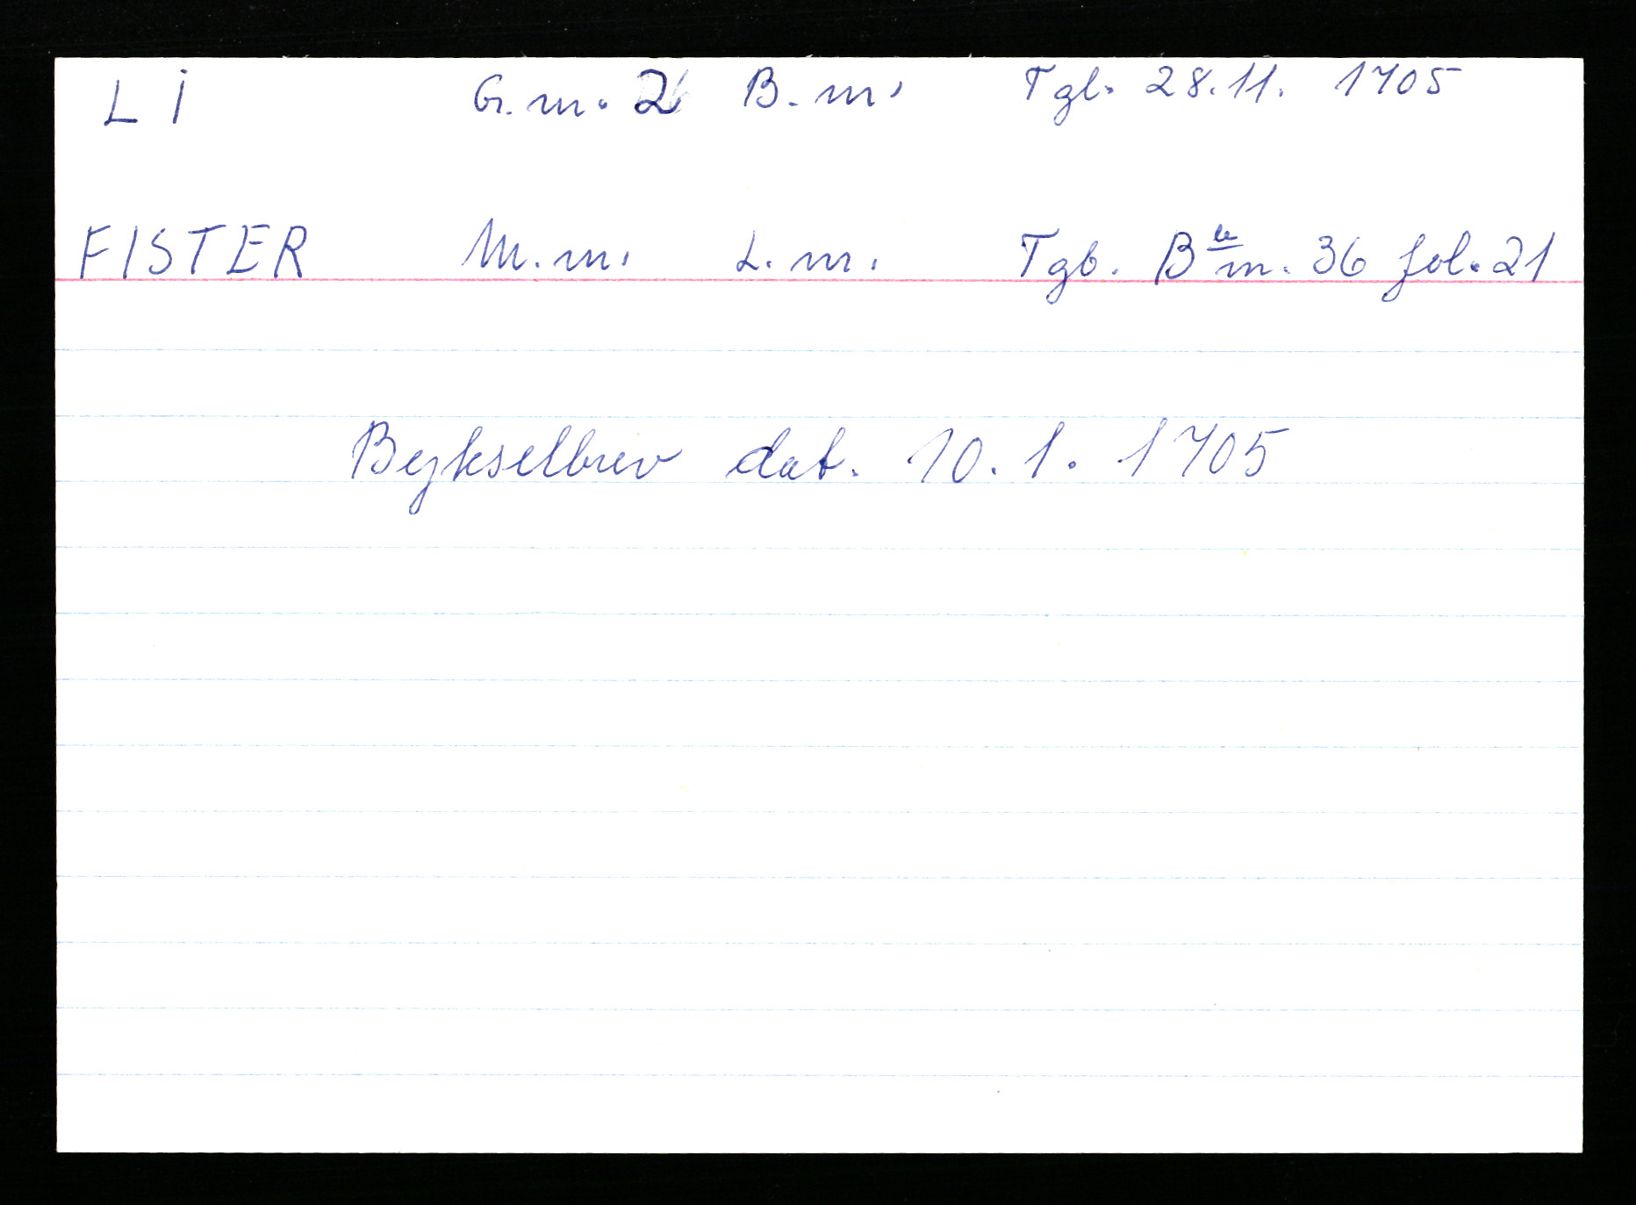 LI G.m. 2 B.m. Tgl. 28.11. 1705
FISTER M.m. L.m. Tgb. B le m. 36 fol. 21
Bygselbrev dat. 10.1. 1705